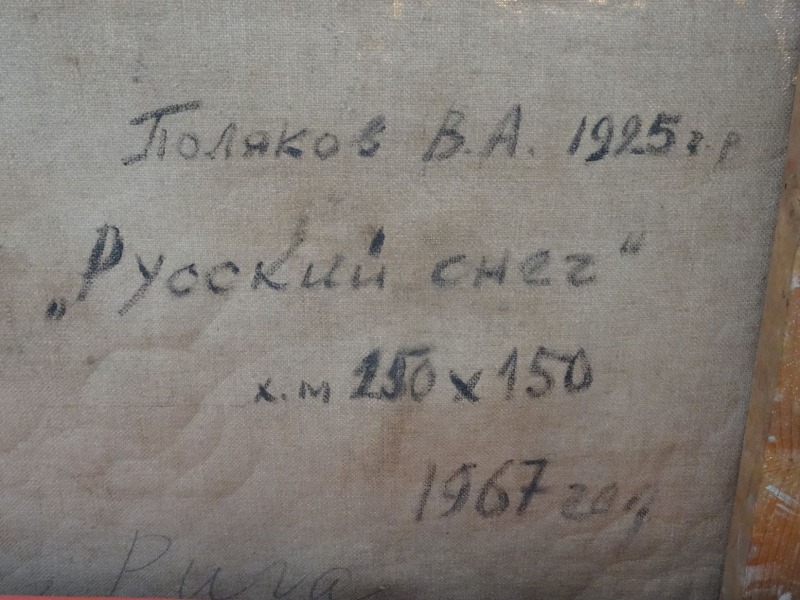 Поляков В.А. 1925 г.р
„Русский снег“
х.м 250 х 150
1967 год
Рига